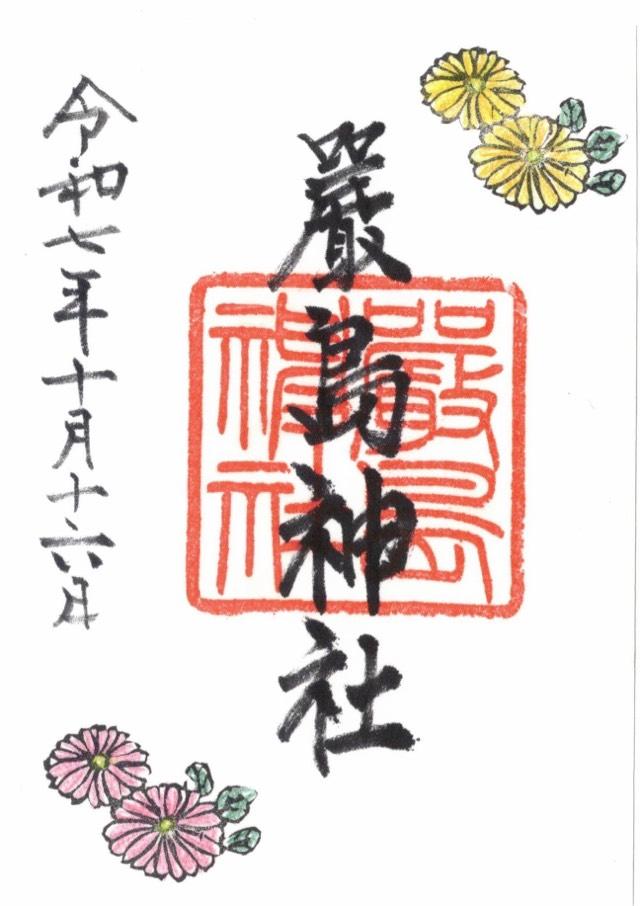 嚴島神社
嚴島
神社
令和七年十月十六日